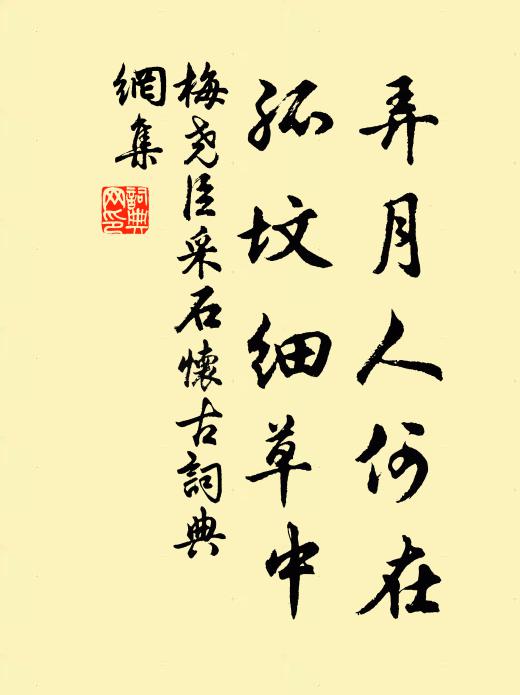 弄月人何在
孤坟细草中
梅尧臣采石懷古詞典
網集
詞典
网印